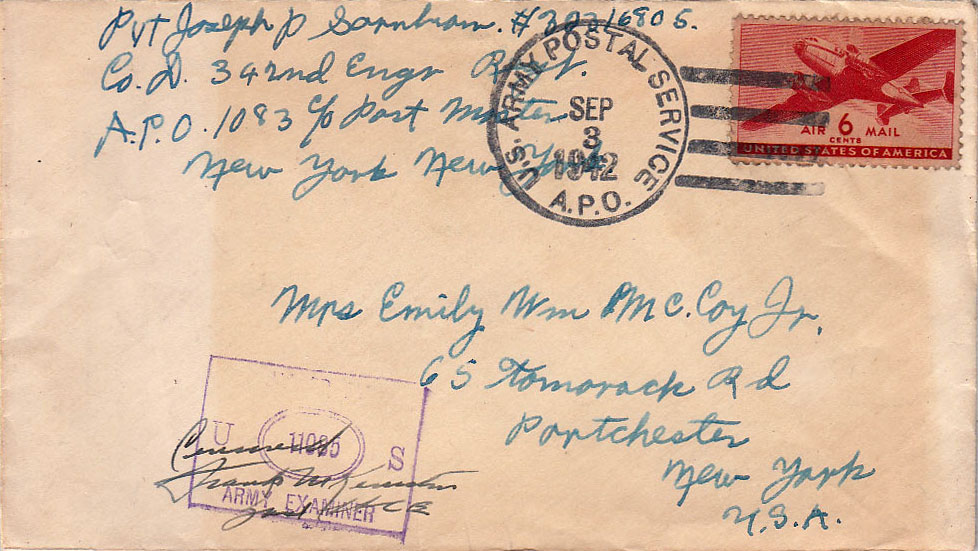 Pvt Joseph P Sornbran. #32216805.
Co. D. 342nd Engr Regt.
A.P.O. 1083 c/o Post Master
New York New York
U.S. ARMY POSTAL SERVICE
SEP
3
1942
A.P.O.
AIR 6 MAIL
CENTS
UNITED STATES OF AMERICA
Mrs Emily Wm Mc.Coy Jr.
65 Tomorack Rd
Portchester
New York
U.S.A.
U 11085 S
Censored
Frank
ARMY EXAMINER